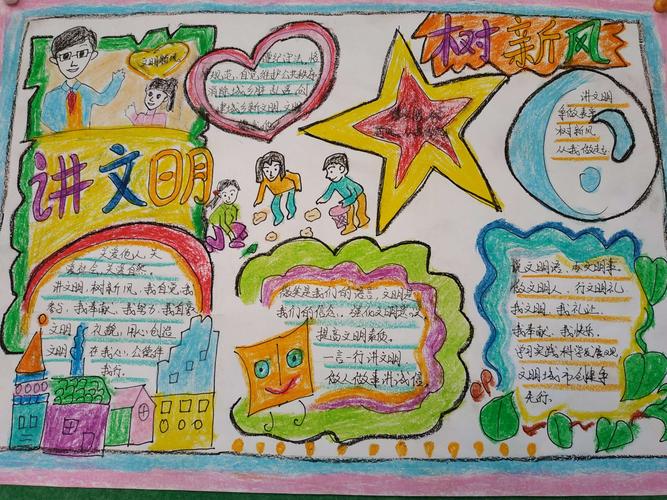 讲文明
树新风
文明新风
遵纪守法，恪
规范，自觉维护公共秩序
消除城乡脏乱差，创
建城乡新文明
讲文明
争做表率
树新风
从我做起
友爱他人，关
爱社会，关爱自然
讲文明，树新风，我自觉，我
我奉献，我努力，我自豪
文明 礼貌，用心创造
文明 在我心，公德伴
我行。
微笑是我们的语言，文明是
我们的信念，强化文明意识
提高文明素质。
一言一行讲文明
做人做事讲诚信
说文明语，办文明事，
做文明人，行文明礼
我文明，我礼让，
我奉献，我快乐，
学习实践科学发展观，
文明城市创建争
先行。